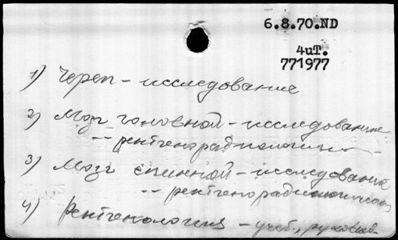 6.8.70.ND
4иT.
771977
1) Череп - исследование
2) Мозг головной - исследование
-- рентгенорадиологич.
3) Мозг спинной - исследование
-- рентгенорадиологическое
4) Рентгенология - учеб., руковод.